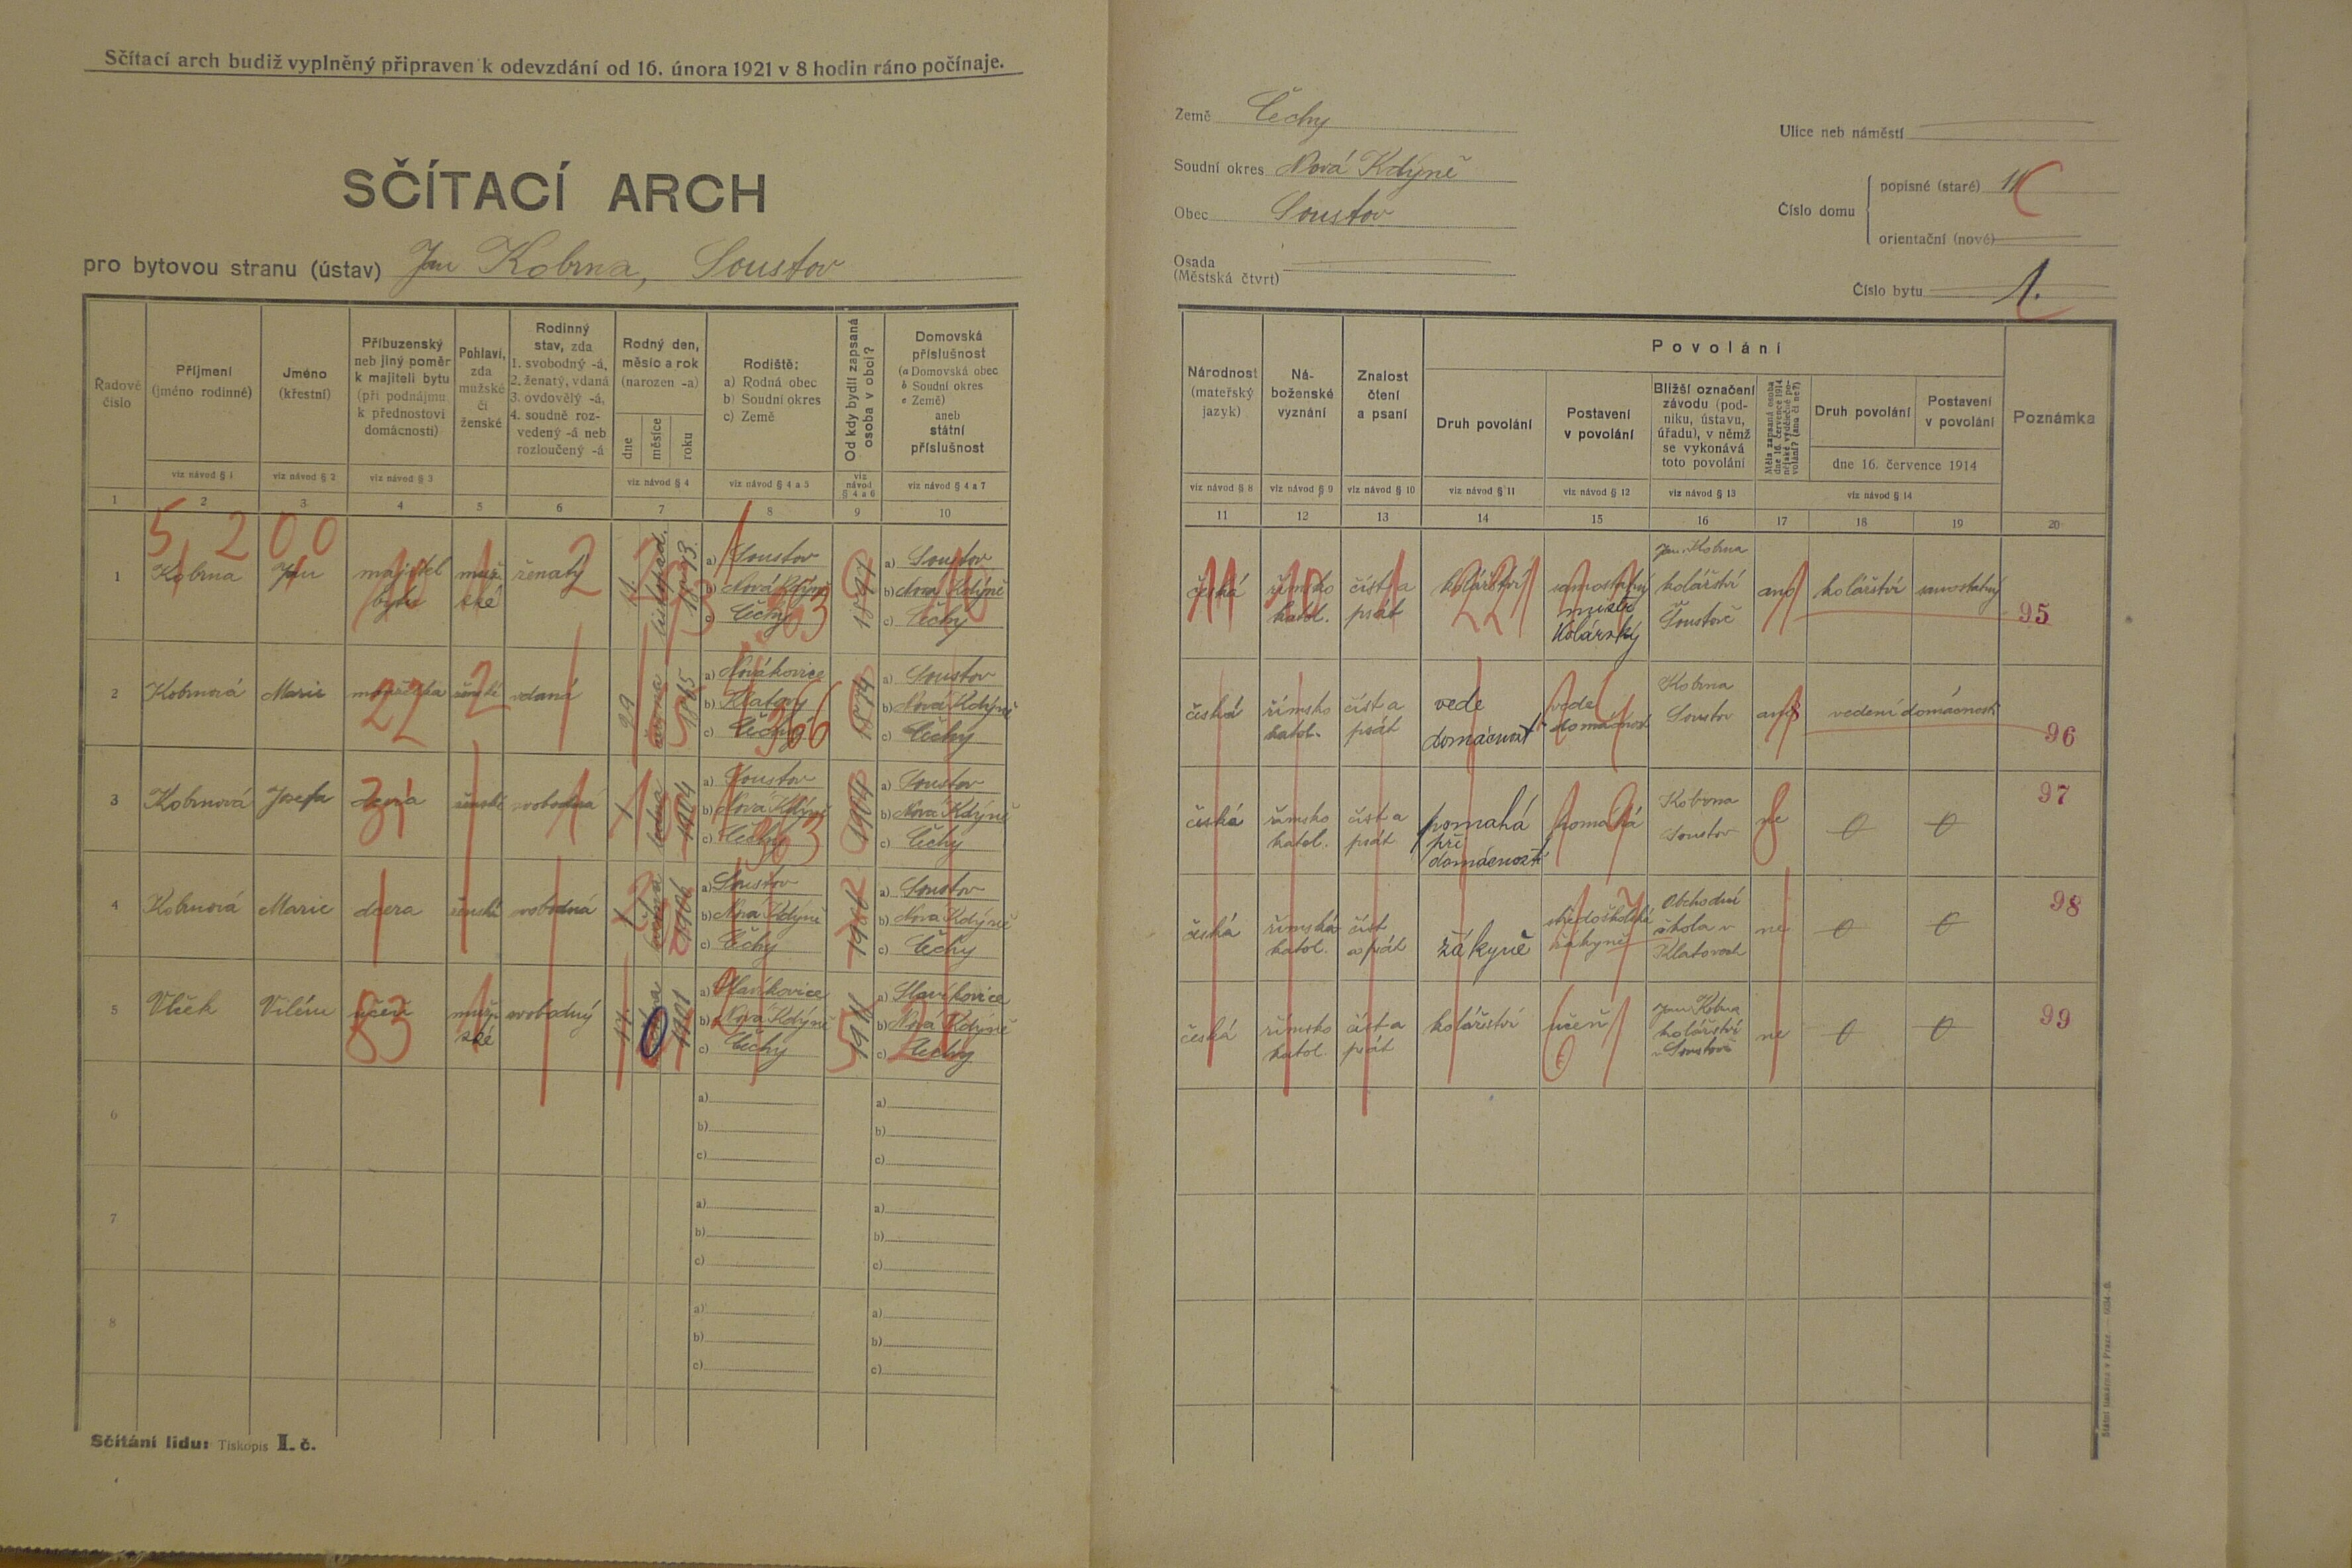 Sčítací arch budiž vyplněný připraven k odevzdání od 16. února 1921 v 8 hodin ráno počínaje.
SČÍTACÍ ARCH
pro bytovou stranu (ústav) Jan Kobrna, Soustov
Řadové číslo
Příjmení (jméno rodinné)
Jméno (křestní)
Příbuzenský neb jiný poměr k majiteli bytu (při podnájmu k přednostovi domácnosti)
Pohlaví, zda mužské či ženské
Rodinný stav, zda 1. svobodný -á, 2. ženatý, vdaná 3. ovdovělý -á, 4. soudně rozvedený -á neb rozloučený -á
Rodný den, měsíc a rok (narozen -a)
dne měsíce roku
Rodiště:
a) Rodná obec
b) Soudní okres
c) Země
Od kdy bydlí zapsaná osoba v obci?
Domovská příslušnost
(a Domovská obec
b Soudní okres
c Země)
aneb státní příslušnost
viz návod § 1 viz návod § 2 viz návod § 3 viz návod § 4 viz návod § 4 a 5 viz návod § 4 a 6 viz návod § 4 a 7
1 2 3 4 5 6 7 8 9 10
5, 2 0 0
1 Kobrna Jan majitel bytu mužské ženatý 2 listopad.
a) Soustov a) Soustov
b) Nová Kdýně b) Nová Kdýně
c) Čechy c) Čechy
2 Kobrnová Marie manželka ženské vdaná 29 1865
a) Novákovice a) Soustov
b) Klatovy b) Nová Kdýně
c) Čechy c) Čechy
3 Kobrnová Josefa dcera ženské svobodná 1 ledna 1904 1904
a) Soustov a) Soustov
b) Nová Kdýně b) Nová Kdýně
c) Čechy c) Čechy
4 Kobrnová Marie dcera ženské svobodná 1906
a) Soustov a) Soustov
b) Nová Kdýně b) Nová Kdýně
c) Čechy c) Čechy
5 Vlček Vilém učeň mužské svobodný 14. 1901
a) Slavíkovice a) Slavíkovice
b) Nová Kdýně b) Nová Kdýně
c) Čechy c) Čechy
6
a) a)
b) b)
c) c)
7
a) a)
b) b)
c) c)
8
a) a)
b) b)
c) c)
Sčítání lidu: Tiskopis I. č.
Země Čechy
Soudní okres Nová Kdýně
Obec Soustov
Osada (Městská čtvrt)
Ulice neb náměstí
Číslo domu
popisné (staré) 11
orientační (nové)
Číslo bytu 1.
Národnost (mateřský jazyk)
Náboženské vyznání
Znalost čtení a psaní
Povolání
Druh povolání
Postavení v povolání
Bližší označení závodu (podniku, ústavu, úřadu), v němž se vykonává toto povolání
Měla zapsaná osoba dne 16. července 1914 nějaké výdělečné povolání? (ano či ne?)
Druh povolání
Postavení v povolání
dne 16. července 1914
Poznámka
viz návod § 8 viz návod § 9 viz návod § 10 viz návod § 11 viz návod § 12 viz návod § 13 viz návod § 14
11 12 13 14 15 16 17 18 19 20
česká římsko katol. číst a psát kolářství samostatný mistr kolářský Jan Kobrna kolářství Soustově ano kolářství samostatný 95
česká římsko katol. číst a psát vede domácnost vede domácnost Kobrna Soustov ano vedení domácnosti 96
česká římsko katol. číst a psát pomahá při domácnosti pomahá Kobrna Soustov ne 0 0 97
česká římská katol. číst a psát žákyně středoškolská žákyně Obchodní škola v Klatovech ne 0 0 98
česká římsko katol. číst a psát kolářství učeň Jan Kobrna kolářství v Soustově ne 0 0 99